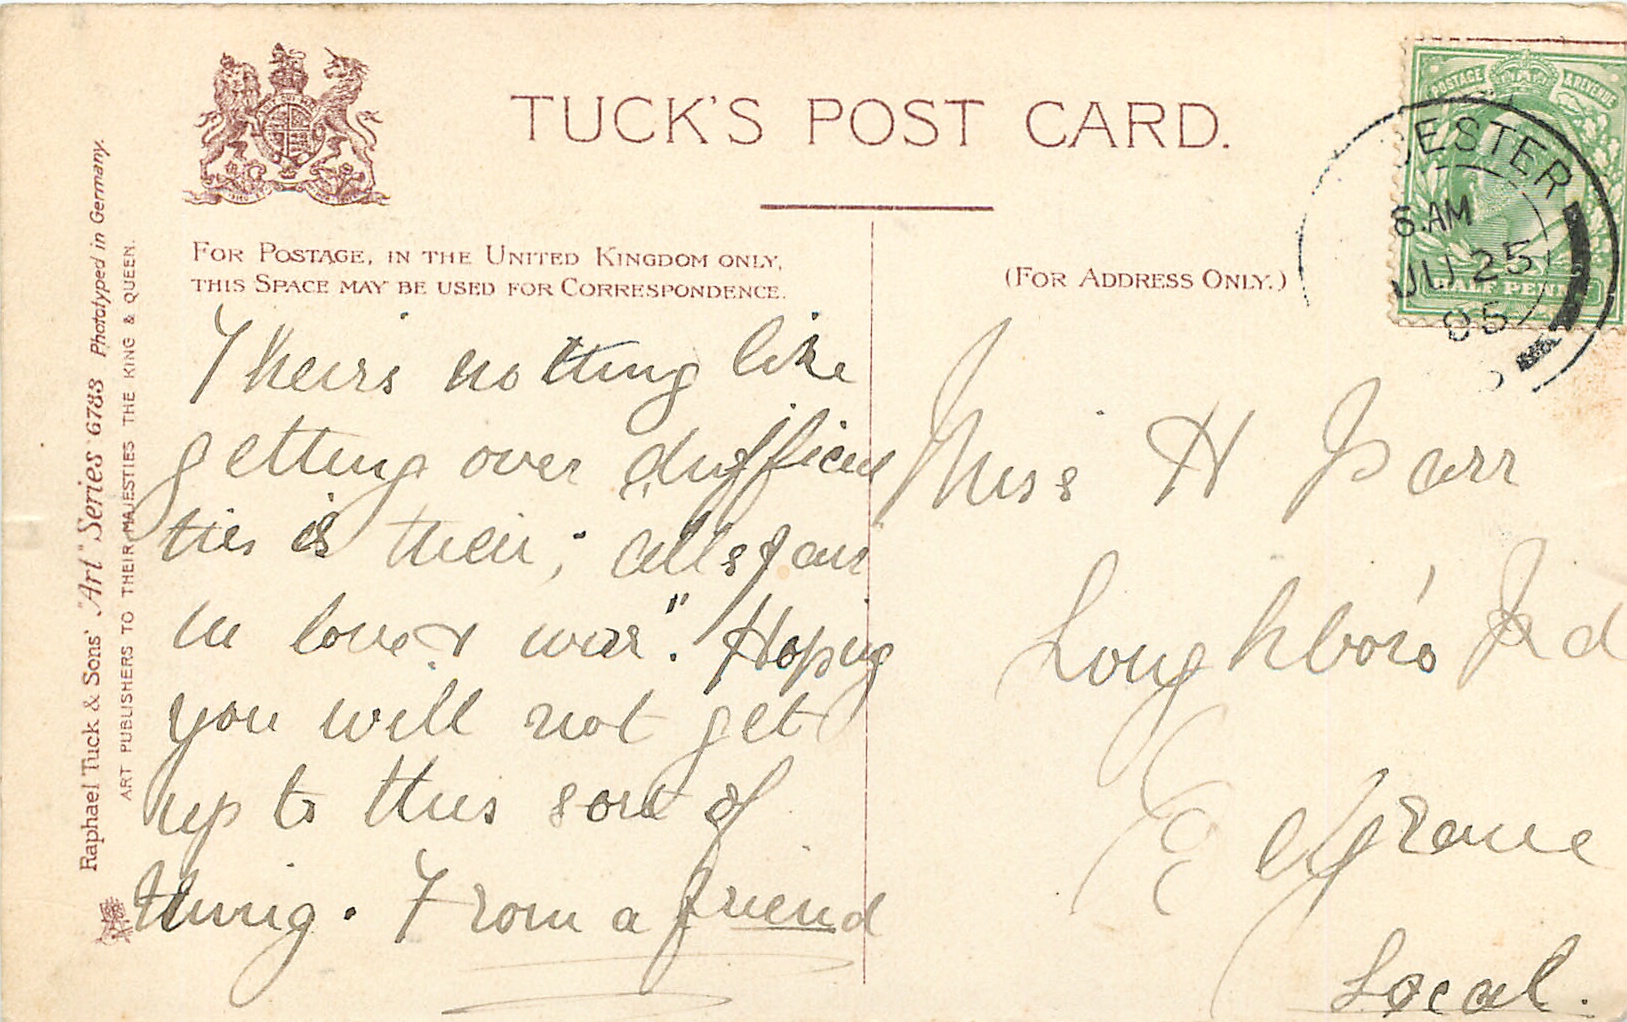 TUCK'S POST CARD.
FOR POSTAGE, IN THE UNITED KINGDOM ONLY,
THIS SPACE MAY BE USED FOR CORRESPONDENCE.
(FOR ADDRESS ONLY.)
POSTAGE & REVENUE
HALF PENNY
CESTER
6. AM
JU 25
05
Raphael Tuck & Sons' "Art" Series 6783 Photatyped in Germany.
ART PUBLISHERS TO THEIR MAJESTIES THE KING & QUEEN.
Theirs nothing like
getting over difficul
ties is their; "alls fair
in love & war". Hoping
you will not get
up to this sort of
thing. From a friend
Miss H Parr
Loughboro' Rd
Belgrave
Local.